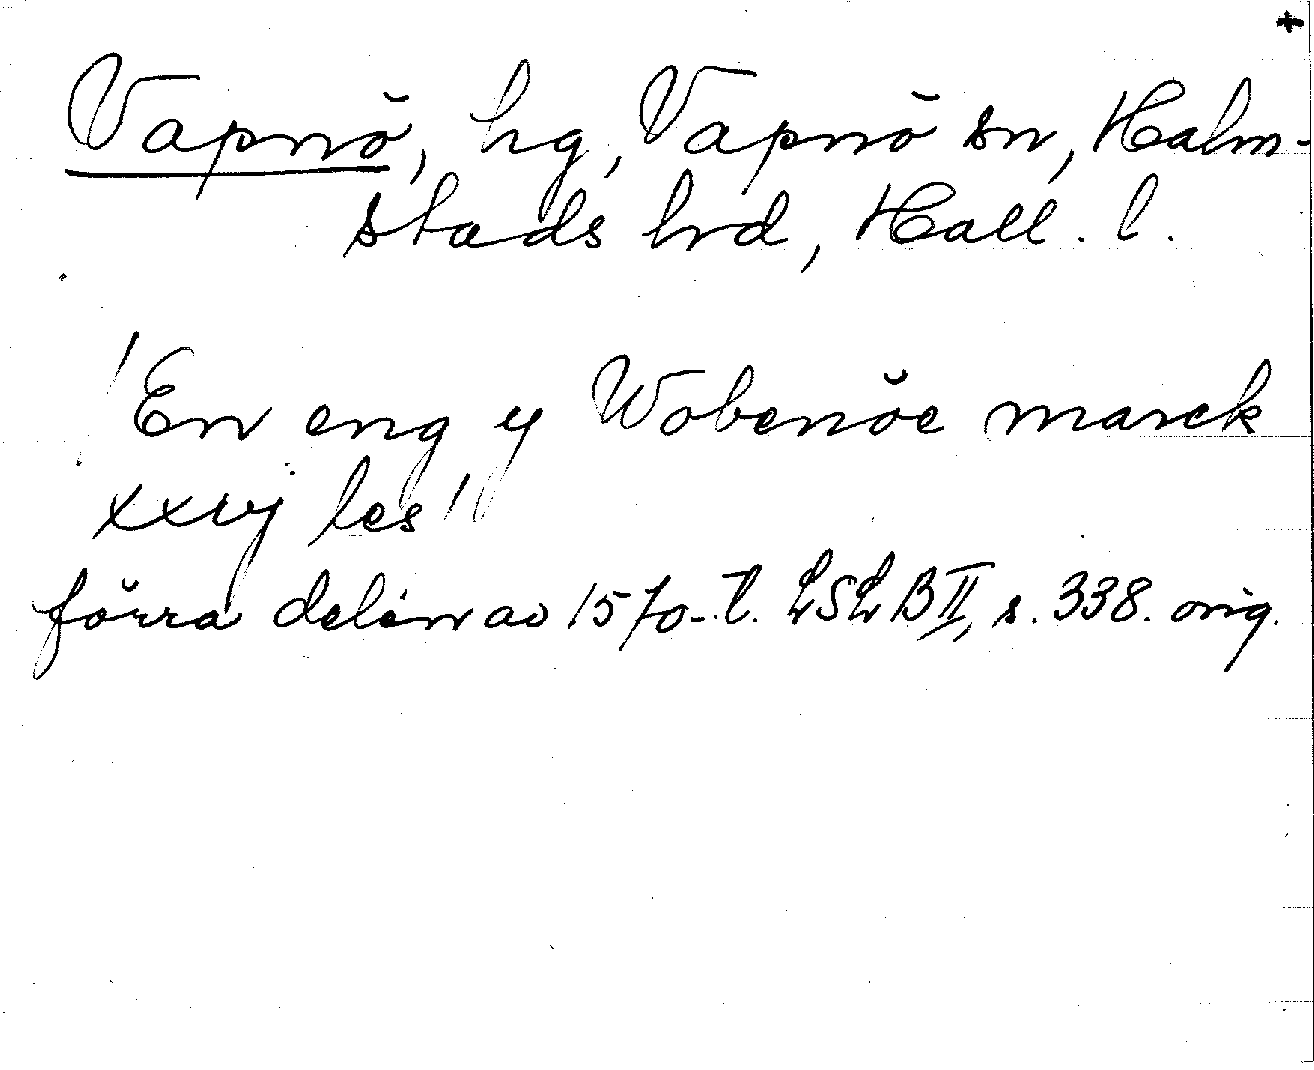 +
Vapnö, hg, Vapnö sn, Halm-
stads hrd, Hall. l.
/En eng y Wobenöe marck
xxvj les/
förra delen av 1570-t. LSLB II, s. 338. orig.